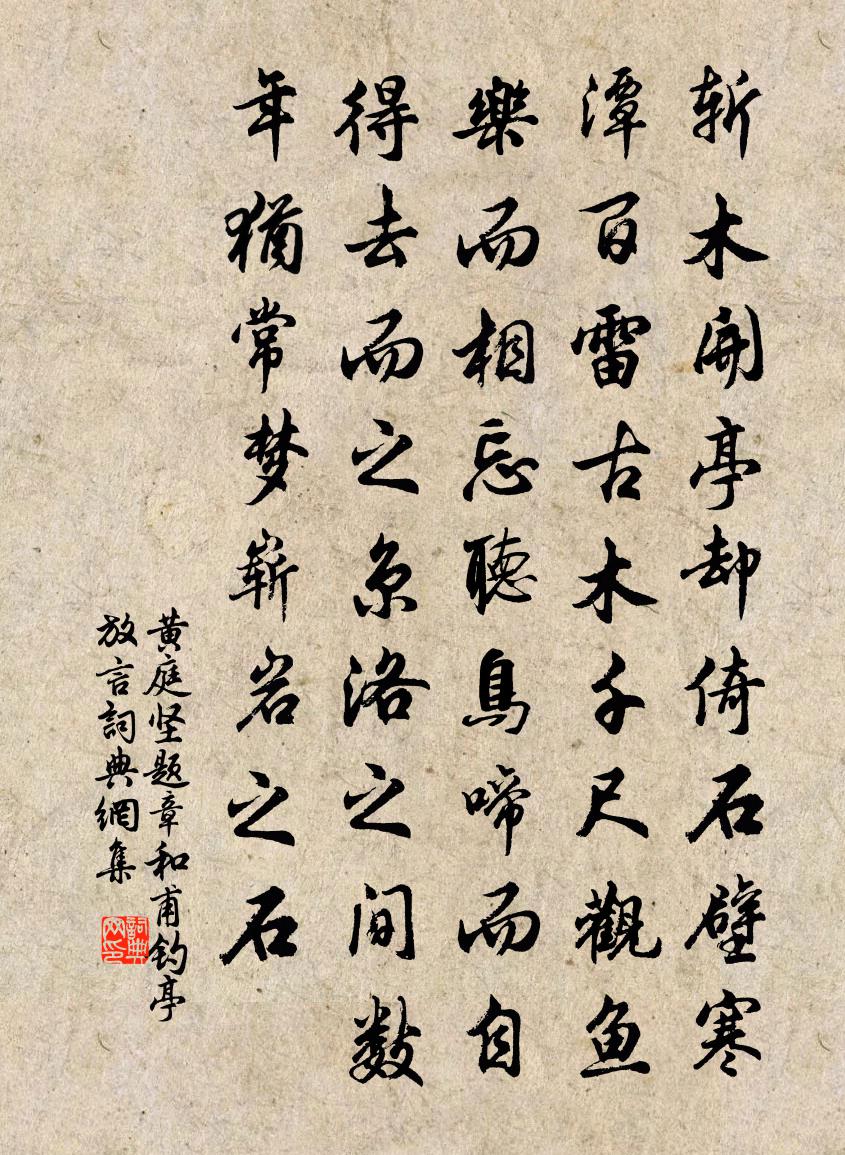 斩木開亭却倚石壁寒
潭百雷古木千尺觀鱼
樂而相忘聽鳥啼而自
得去而之京洛之间数
年猶常梦崭岩之石
黄庭坚题章和甫钓亭
放言詞典網集
詞典
网印